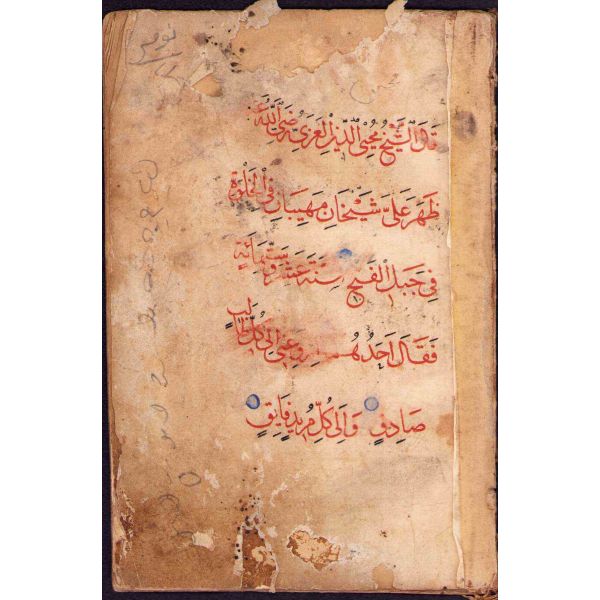 قَالَ الشَّيْخُ مُحْيِي الدِّينِ الْعَرَبِيُّ رَضِيَ اللّٰهُ عَنْهُ
ظَهَرَ عَلَيَّ شَيْخَانِ مَهِيبَانِ فِي الْخَلْوَةِ
فِي جَبَلِ الْفَتْحِ سَنَةَ عَشَرَ وَسِتَّمِائَةٍ
فَقَالَ اَحَدُهُمَـ عَنِّي اِلٰى كُلِّ طَالِبٍ
صَادِقٍ وَاِلٰى كُلِّ مُرِيدٍ فَايِقٍ